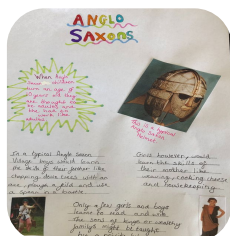 ANGLO
SAXONS
When
children
turn an age of
10 years old they
are thought to
be adults and
the had
work like
This is a typical
Anglo Saxon
Helmet
In a typical Anglo Saxon
Village boys would learn
the skills of their father like
chopping down trees with an
axe, plough a field and use
a spear in a battle.
Girls however, would
learn the skills of
their mother like
weaving, cooking, cheese
and housekeeping
Only a few girls and boys
learned to read and write
The sons of kings or wealthy
family's might be taught